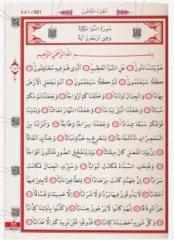 581 / ٥٨١ الجزء الثلاثون
سورة النبإ مكية
وهي أربعون آية
بسم الله الرحمن الرحيم
عم يتساءلون عن النبإ العظيم الذي هم فيه مختلفون
كلا سيعلمون ثم كلا سيعلمون ألم نجعل الأرض
مهادا والجبال أوتادا وخلقناكم أزواجا وجعلنا
نومكم سباتا وجعلنا الليل لباسا وجعلنا النهار معاشا
وبنينا فوقكم سبعا شدادا وجعلنا سراجا وهاجا وأنزلنا من
المعصرات ماء ثجاجا لنخرج به حبا ونباتا وجنات ألفافا
إن يوم الفصل كان ميقاتا يوم ينفخ في الصور فتأتون أفواجا
وفتحت السماء فكانت أبوابا وسيرت الجبال فكانت
سرابا إن جهنم كانت مرصادا للطاغين مآبا لابثين
فيها أحقابا لا يذوقون فيها بردا ولا شرابا إلا حميما
وغساقا جزاء وفاقا إنهم كانوا لا يرجون حسابا وكذبوا بآياتنا كذابا
وكل شيء أحصيناه كتابا فذوقوا فلن نزيدكم إلا عذابا